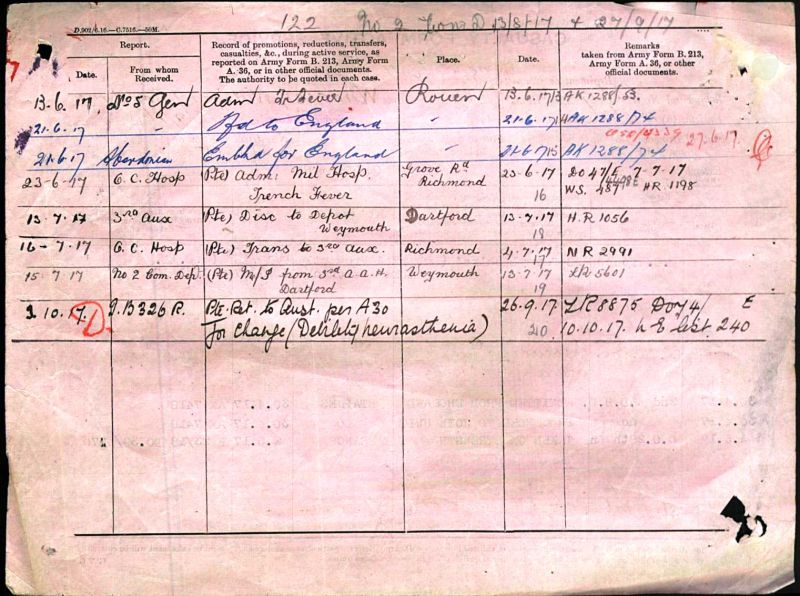 122 No 2 D 13/8/17 + 27/9/17
D.902/6.16.—C.7516.—50M.
Report.
Date.
From whom Received.
Record of promotions, reductions, transfers, casualties, &c., during active service, as reported on Army Form B. 213, Army Form A. 36, or in other official documents. The authority to be quoted in each case.
Place.
Date.
Remarks taken from Army Form B. 213, Army Form A. 36, or other official documents.
13.6.17 No 5 Gen Adm Tr Fever Rouen 13.6.17 AK 1288/53.
21.6.17 " to England " 21.6.17 AK 1288/74
21.6.17 Aberdonian Embkd for England " 21.6.17 AK 1288/74 27.6.17.
23-6-17 G.C. Hosp (Pte) Adm: Mil Hosp. Grove Rd 23.6.17 DO 47/E 7-7-17
Trench Fever Richmond 16 WS. 487 HR 1198
13.7.17 3rd Aux (Pte) Disc to Depot Dartford 13.7.17 H.R 1056
Weymouth 18
16-7.17 G.C. Hosp (Pte) Trans to 3rd Aux. Richmond 4.7.17 NR 2991
17
15.7.17 No 2 Com. Dep. (Pte) M/I from 3rd A.A.H. Weymouth 13.7.17 5601
Dartford 19
3.10.17. D. 326 R. Pte. Ret. to Aust. per A30 26.9.17 LR 8875 Doy 4/ E
For Change (Debility neurasthenia) 20 10.10.17. 240